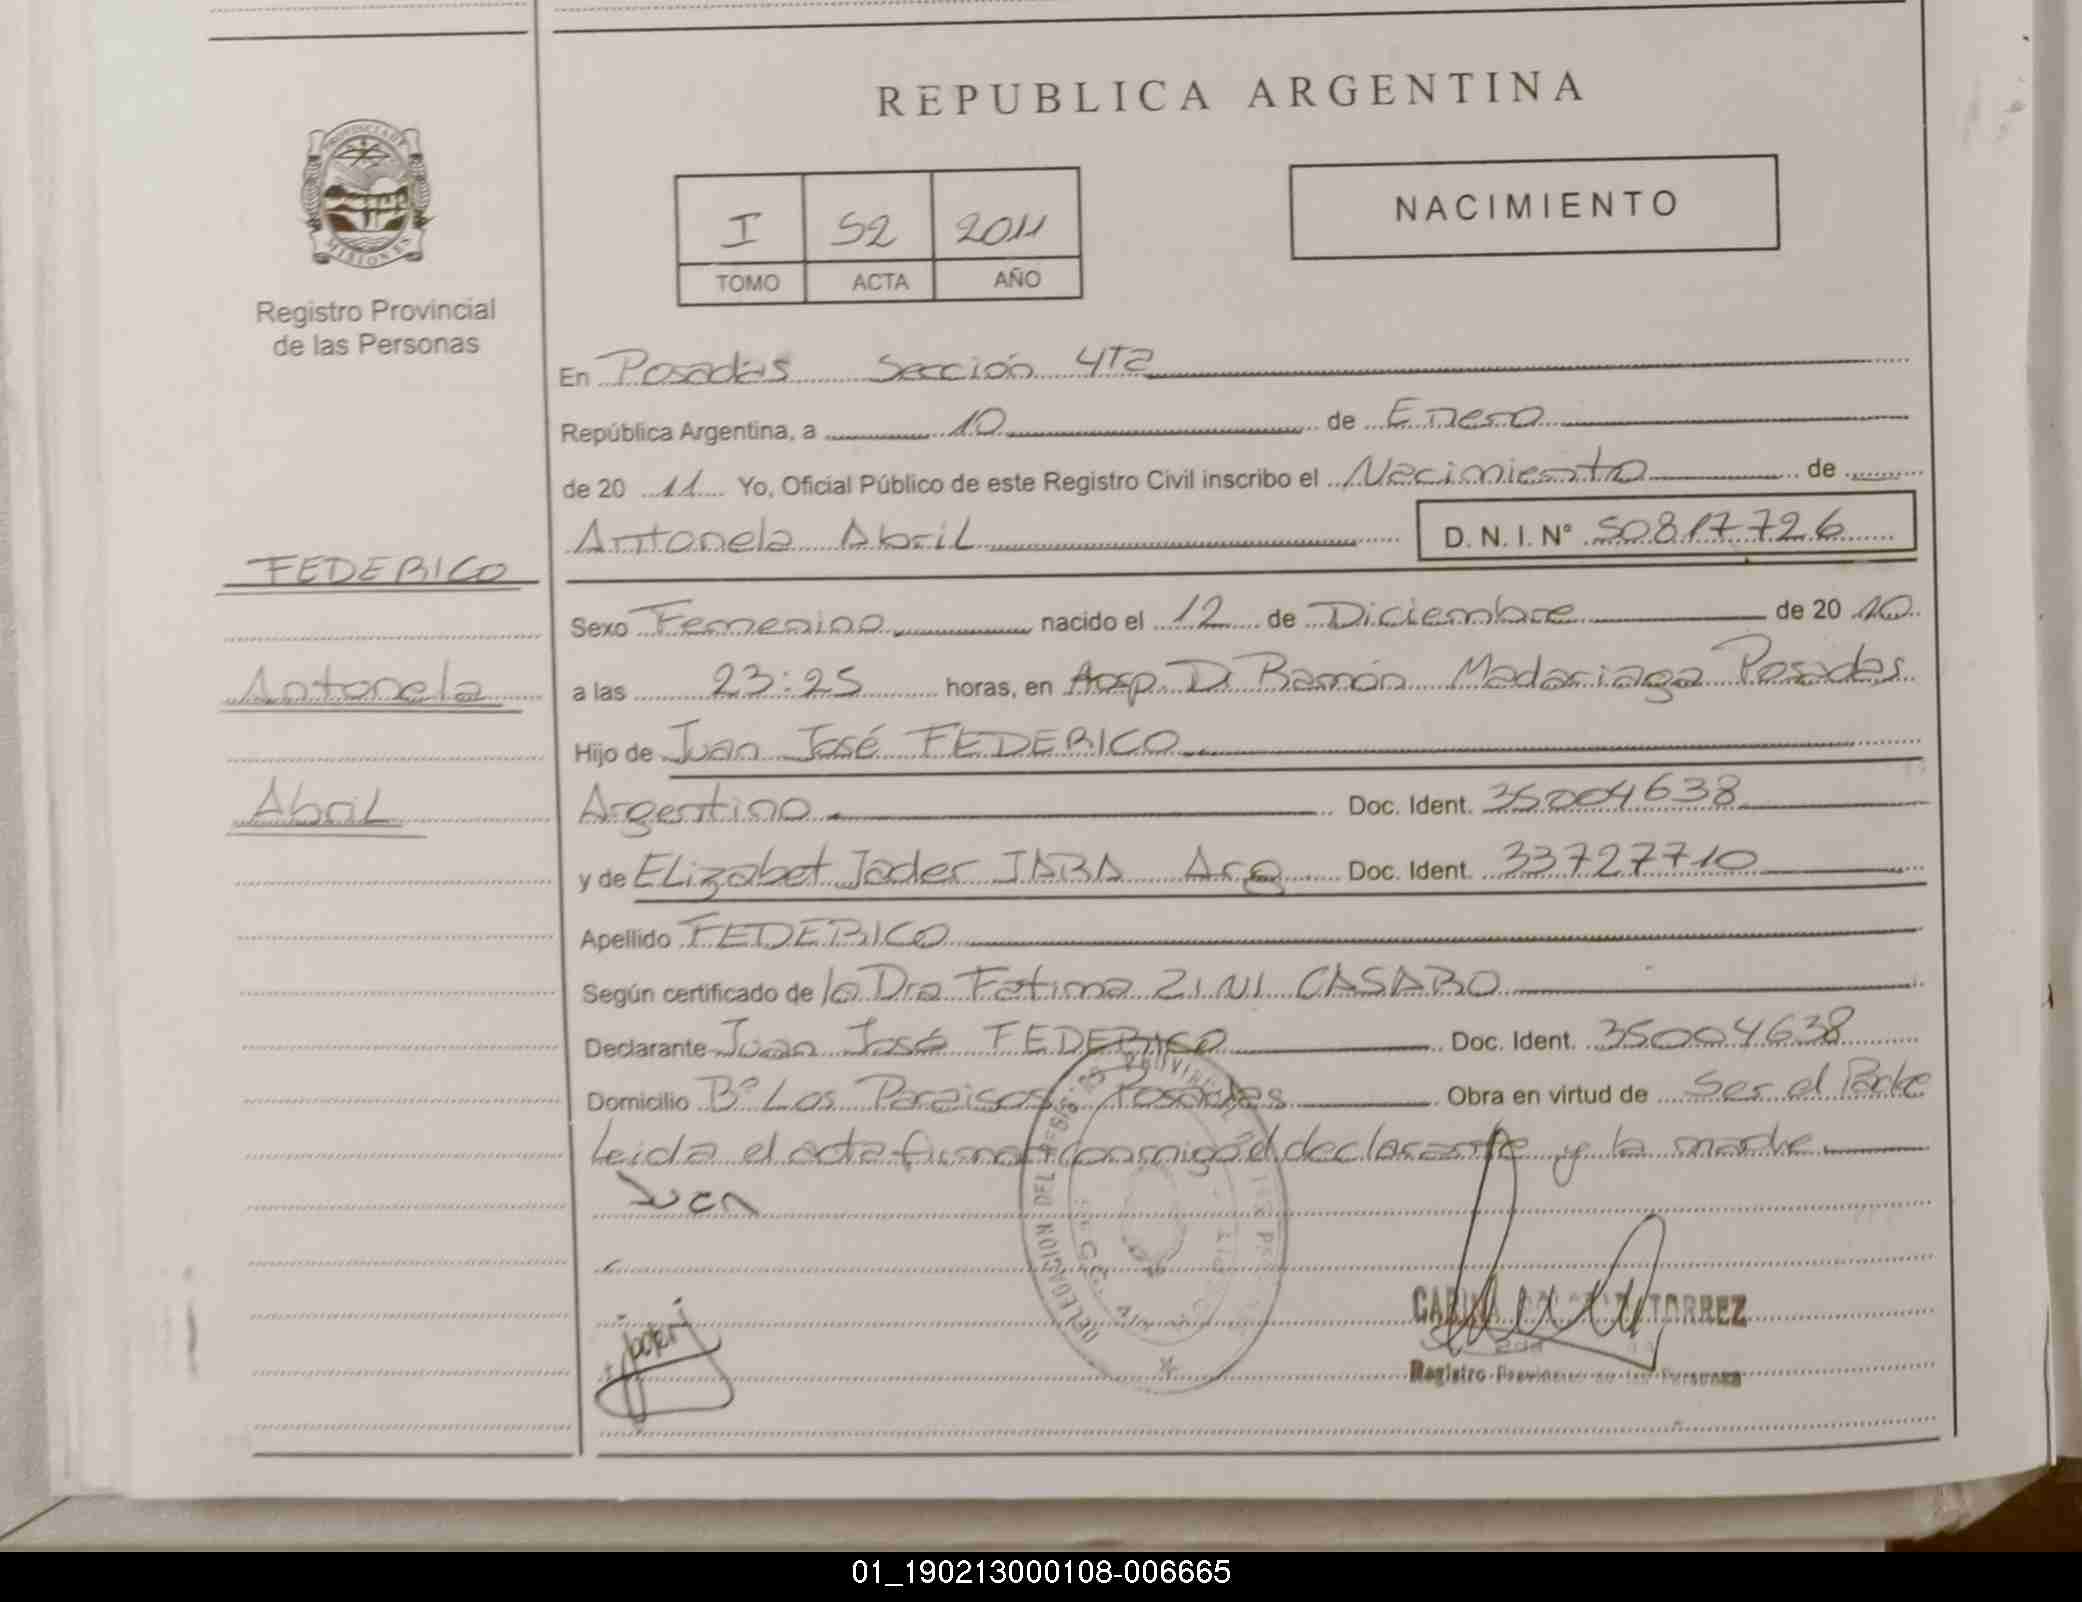 REPUBLICA ARGENTINA
PROVINCIA DE MISIONES
Registro Provincial
de las Personas
I 52 2011
TOMO ACTA AÑO
NACIMIENTO
En Posadas Sección 4ta
República Argentina, a 10 de Enero
de 20 11 Yo, Oficial Público de este Registro Civil inscribo el Nacimiento de
Antonela Abril D. N. I. N° 50817726
FEDERICO
Antonela
Abril
Sexo Femenino nacido el 12 de Diciembre de 20 10
a las 23:25 horas, en Hosp. Dr Ramón Madariaga Posadas
Hijo de Juan José FEDERICO
Argentino Doc. Ident. 35004638
y de Elizabet Jader JARA Arg Doc. Ident. 33727710
Apellido FEDERICO
Según certificado de la Dra Fatima ZINI CASARO
Declarante Juan José FEDERICO Doc. Ident. 35004638
Domicilio B° Los Paraisos Posadas Obra en virtud de Ser el Padre
Leida el acta firman conmigo el declarante y la madre
Juan
DELEGACION DEL
TORREZ
Registro
01_190213000108-006665